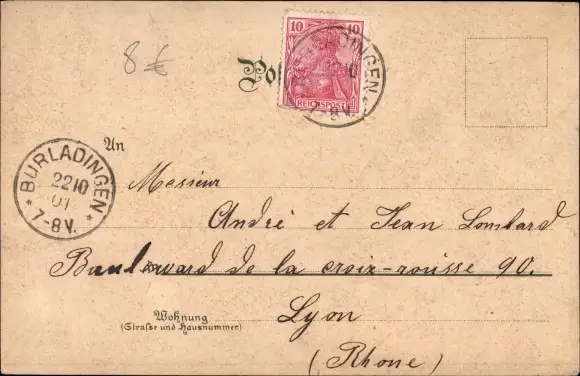 8 €
10 10
REICHSPOST
DINGEN
7-8V.
An
BURLADINGEN
22 10
01
7-8V.
Messieur
André et Jean Lombard
Boulevard de la croix-rousse 90.
Wohnung
(Straße und Hausnummer)
Lyon
(Rhone)